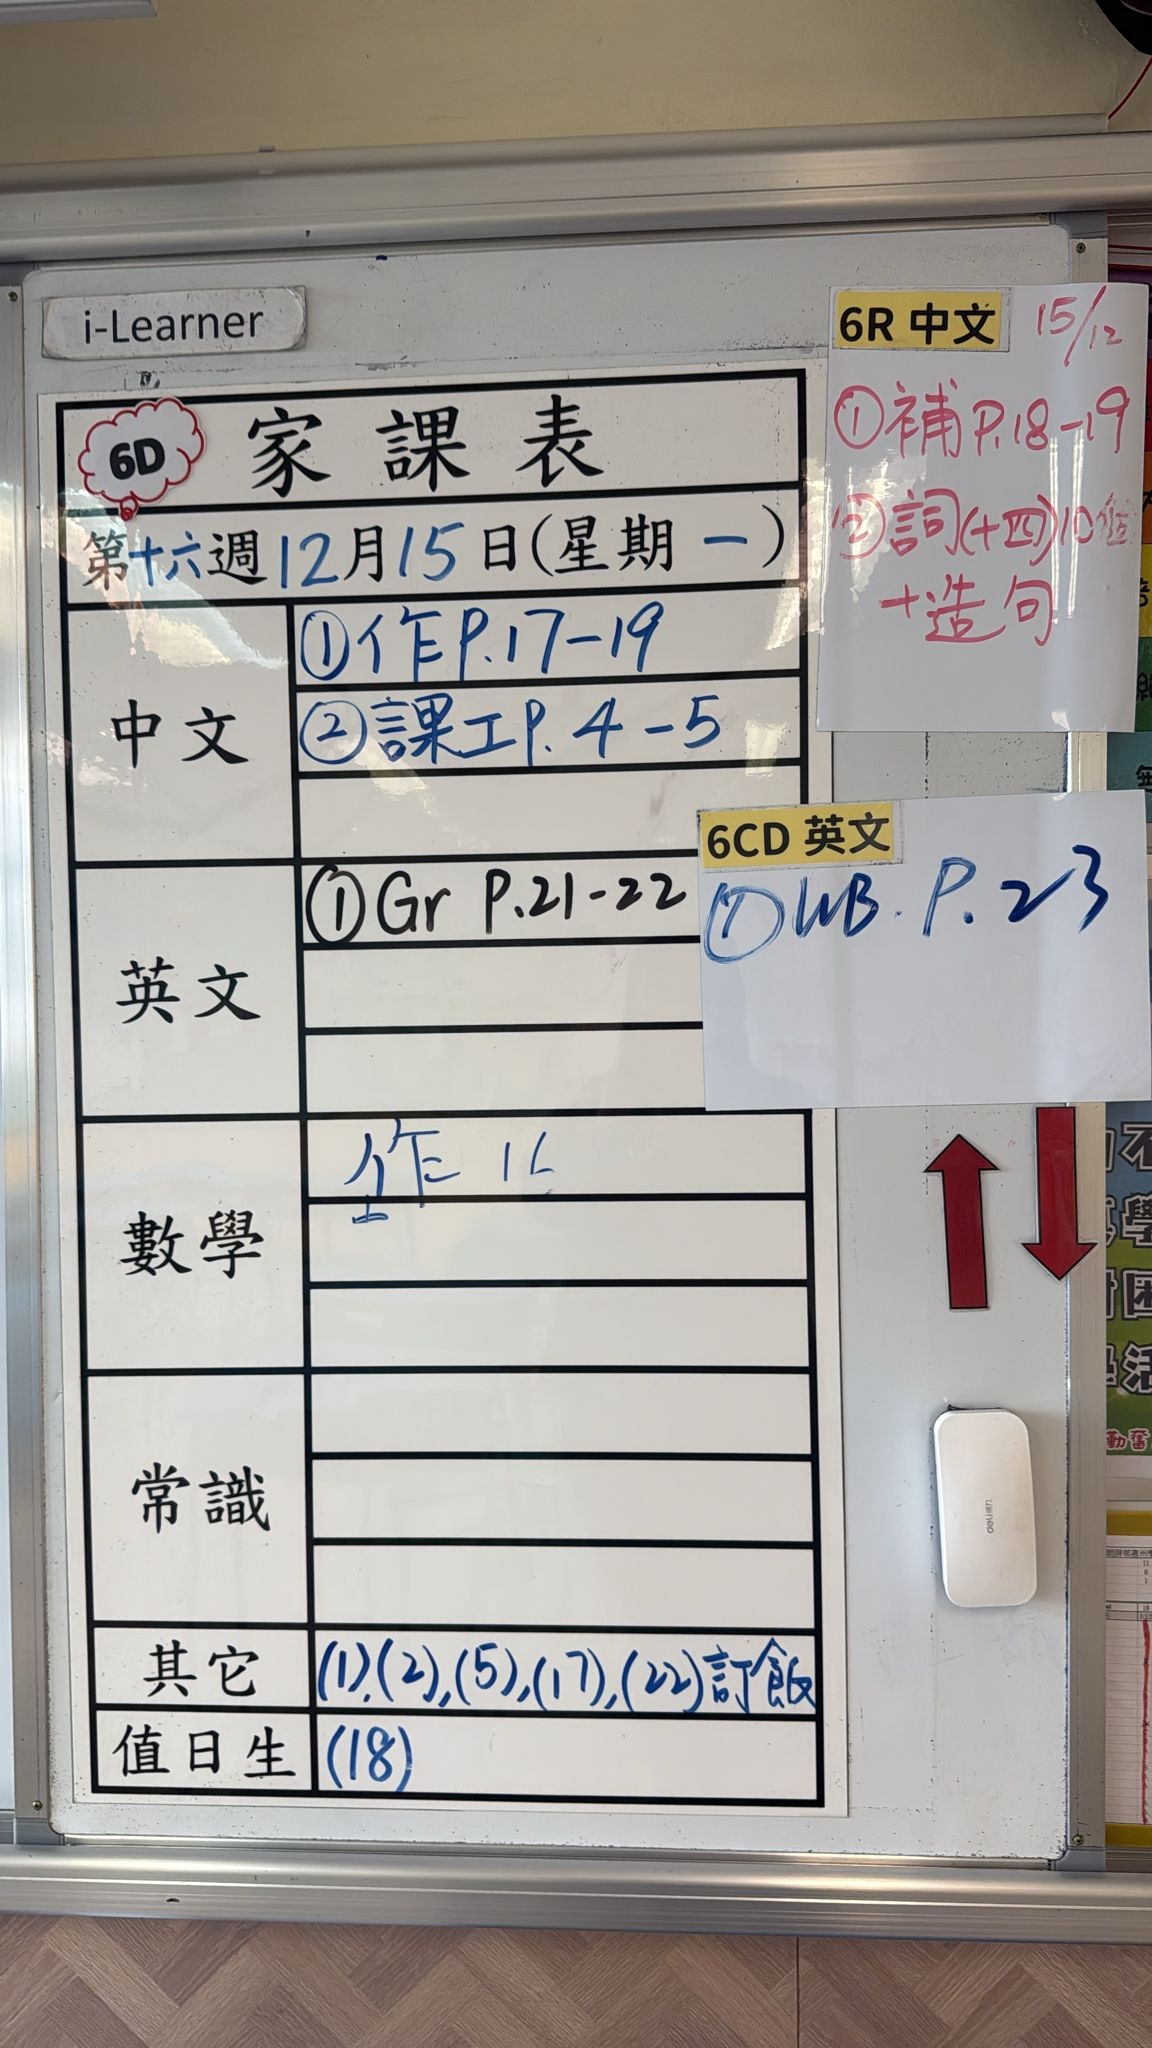 i-Learner
6D
家課表
第十六週12月15日(星期一)
中文
①作P.17-19
②課工P.4-5
英文
①Gr P.21-22
數學
作
常識
其它
(1),(2),(5),(17),(22)訂飯
值日生
(18)
6R 中文 15/12
①補P.18-19
②詞(十四)10個
+造句
6CD 英文
① WB. P.23
deli
勤奮